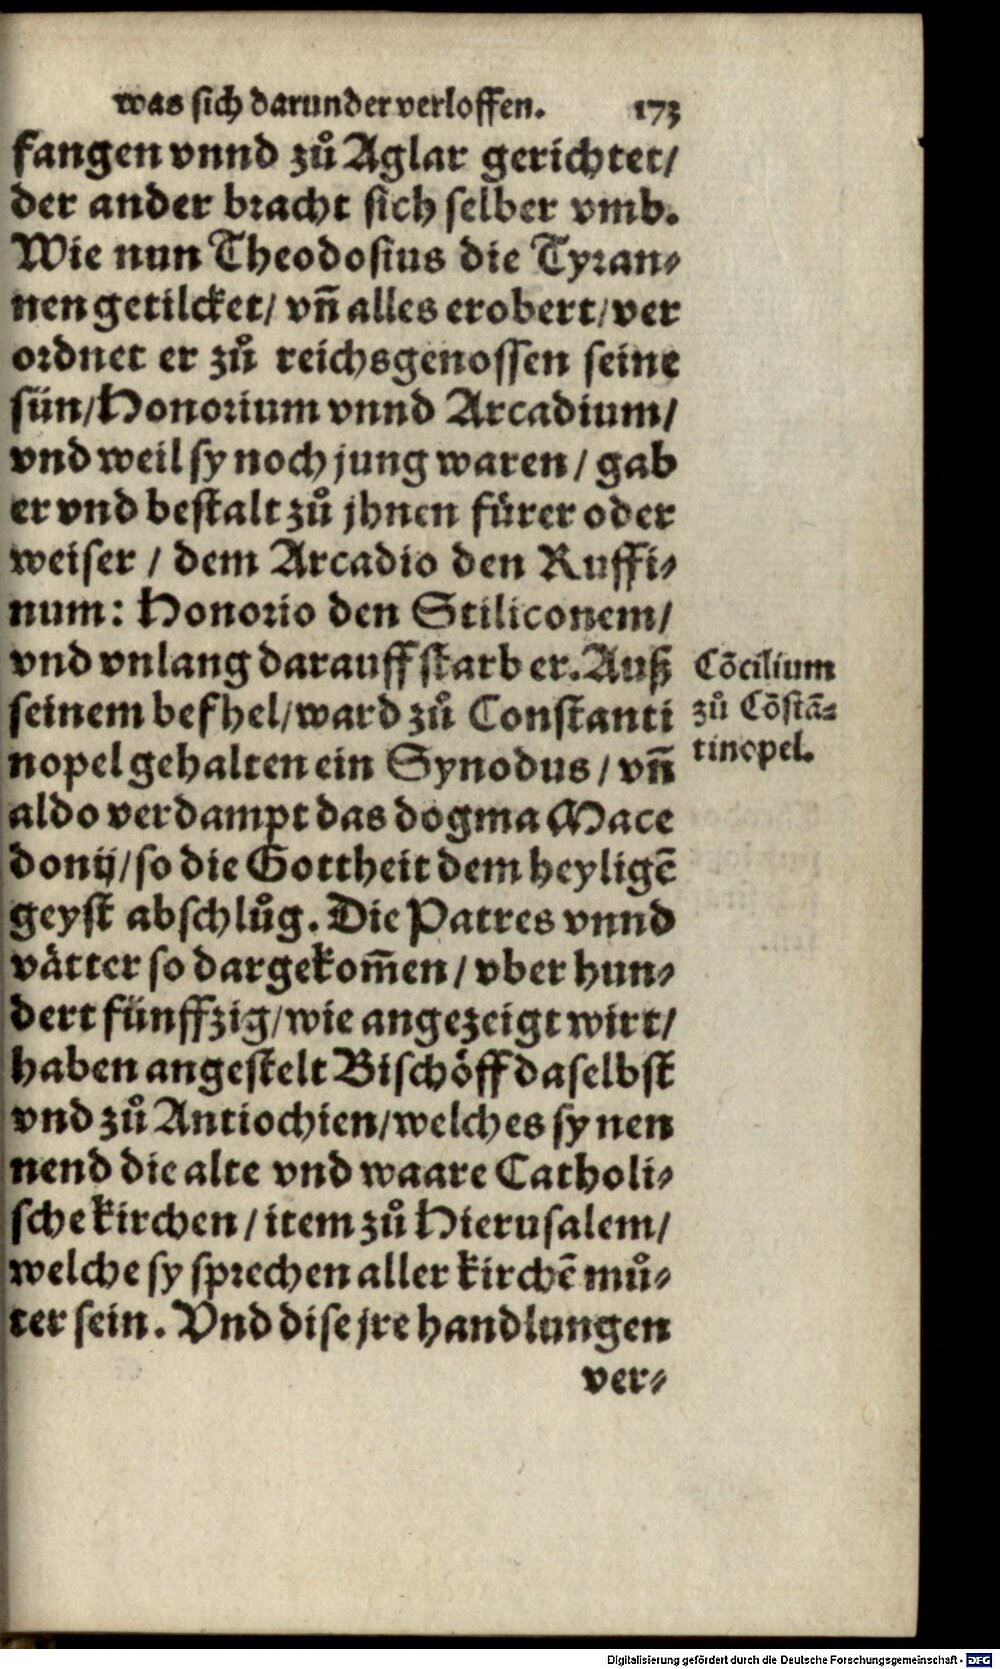 was sich darunder verloffen. 173
fangen vnnd zů Aglar gerichtet/
der ander bracht sich selber vmb.
Wie nun Theodosius die Tyran⸗
nen getilcket/ vñ alles erobert/ ver
ordnet er zů reichsgenossen seine
sün/ Honorium vnnd Arcadium/
vnd weil sy noch jung waren / gab
er vnd bestalt zů jhnen fürer oder
weiser / dem Arcadio den Ruffi⸗
num: Honorio den Stiliconem/
vnd vnlang darauff starb er. Auß
seinem befhel/ ward zů Constanti
nopel gehalten ein Synodus / vñ
aldo verdampt das dogma Mace
donij/ so die Gottheit dem heyligē
geyst abschlůg. Die Patres vnnd
vätter so dargekom̄en / vber hun⸗
dert fünffzig/ wie angezeigt wirt/
haben angestelt Bischöff daselbst
vnd zů Antiochien/ welches sy nen
nend die alte vnd waare Catholi⸗
sche kirchen / item zů Hierusalem/
welche sy sprechen aller kirchē mů⸗
ter sein. Vnd dise jre handlungen
ver⸗
Cōcilium
zů Cōstā⸗
tinopel.
Digitalisierung gefördert durch die Deutsche Forschungsgemeinschaft - DFG